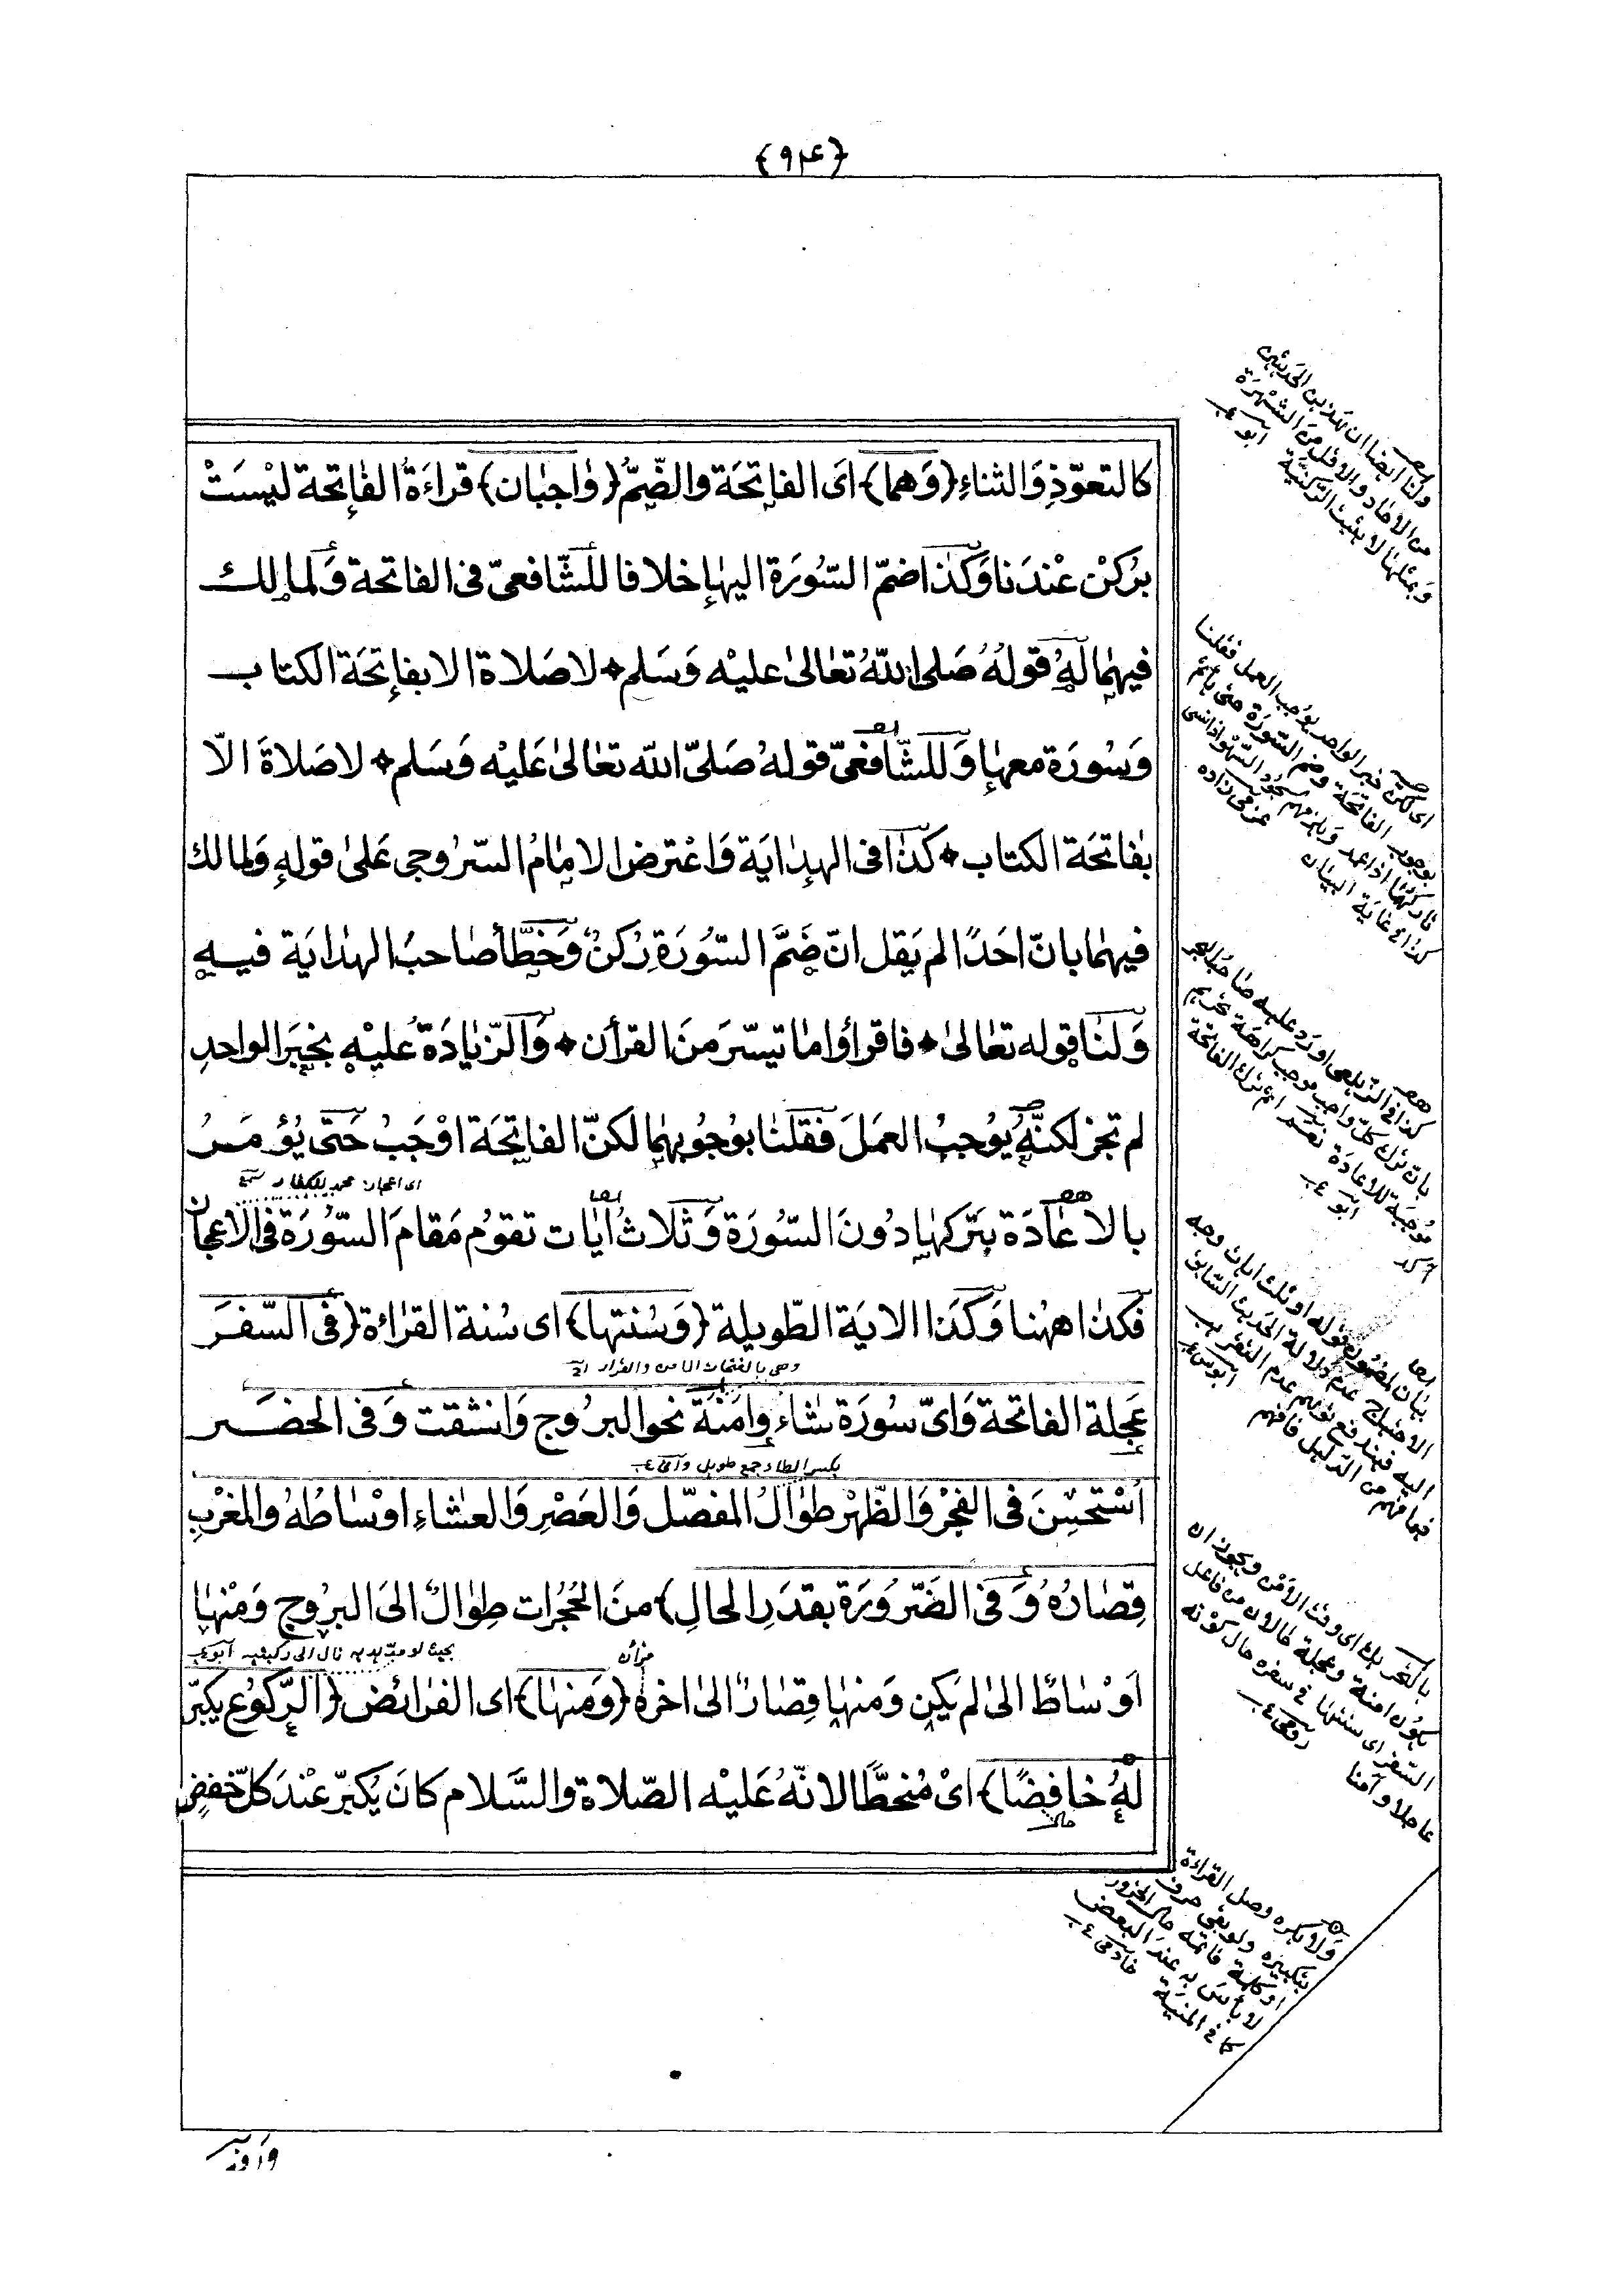 ﴿٩٤﴾
كالتعوّذِ وَالثناءِ (وَهما) اَى الفاتِحَة والضَّمُّ (وٰاجبٰان) قراءَةُ الفاتِحة ليْسَتْ
برُكنْ عنْدَنا وَكَذا ضمّ السّورَة اليهٰا خلافا للشّافعىّ فى الفاتحة وَلمٰالك
فيهمٰا لَهُ قولهُ صَلى اللّٰهُ تعَالىٰ عليْه وَسَلم ﴿ لا صَلاة الا بفاتِحَة الكتاب
وَسُورَة معهٰا وَللشّافعىّ قولهُ صَلىّ اللّٰه تعَالىٰ عَليْه وَسَلم ﴿ لا صَلاةَ الاّ
بفاتحَة الكتاب ﴿ كَذا فى الهدٰايَة وَاعْترض الامٰامُ السّرُوجى عَلىٰ قولهِ وَلمالك
فيهمٰا بانّ احَدًا لم يَقل انّ ضَمَّ السّورَة رُكنٌ وَخطّأ صٰاحبَ الهدٰايَة فيه
وَلنٰا قوله تعَالىٰ ﴿ فاقرأوا مٰا تيسّرَ منَ القرأن ﴿ وَالزّيٰادَة عليْهِ بخبَر الوٰاحدِ
لم تجز لكنّهُ يوُجبُ العمَلَ فقلنٰا بوُجُوبهمٰا لكنّ الفاتِحَة اوْجَبُ حَتى يُؤمَرُ
بالاعٰادَة بتركهٰا دُونَ السّورَة وَثلاثُ اٰيٰات تقوُم مَقامَ السّورَة فى الاعجاز
فكذٰا ههُنا وَكَذَا الايَة الطّويلة (وَسُنتها) اى سُنة القرٰاءة (فى السّفرَ
وهى بالفتحات الامن والقرار
عَجلة الفاتحة وَاىّ سُورَة شٰاءَ وامَنة نحو البرُوج وَانشقت وَفى الحضَر
بكسر الطاء جمع طويل وانى
اُسْتحْسِنَ فى الفجْر وَالظّهْر طوٰالُ المفصّل وَالعَصْرِ وَالعشٰاءِ اوْسٰاطهُ وَالمغْربِ
قِصٰارُهُ وَفى الضّرُورَة بقدَر الحالِ) منَ الحُجرات طِوٰالٌ الىَ البرُوج وَمنْهٰا
اَوْسٰاطٌ الىٰ لم يَكن وَمنهٰا قِصٰارٌ الىٰ اخرهٰ (وَمِنهٰا) اى الفرٰائض (الرّكوُع يكبّرُ
لَهُ خافِضًا) اىْ مُنحطًّا لانّهُ عَليْه الصّلاة وَالسَّلام كانَ يُكبّرُ عنْدَ كلّ خَفضٍ
ولنا ايضا ان هذين الحديثين
من الآحاد والاقل من الشهرة
وبمثلها لا يثبت الركنية
اى لكن خبر الواحد يوجب العمل فقلنا
بوجوب الفاتحة وضم السورة حتى يأثم
تاركهما اذا عمد ويلزمهم سجود السهو اذا نسى
كذا فى غاية البيان
عزمى زاده
كذا فى الزيلعى اورد عليه صاحب البحر
بان ترك كل واجب موجب كراهة تحريم
موجبة للاعادة نعم اثم ترك الفاتحة
آكد
بيان لمضمون قوله او ثلث ايات وجه
الاحتياج عدم دلالة الحديث السابق
اليه فهذا دفع توهم عدم التقريب
فيما فهم من الدليل فافهم
بالتحريك اى وقت الامن ويجوز ان
يكون امنة وعجلة حالان من فاعل
السفر اى سنتها فى سفره حال كونه
عاجلا وآمنا
ولا يكره وصل القراءة
بتكبيره ولو بقى حرف
او كلمة فاتمه حال الخرور
لا بأس به عند البعض
كما فى المنية
خادمى